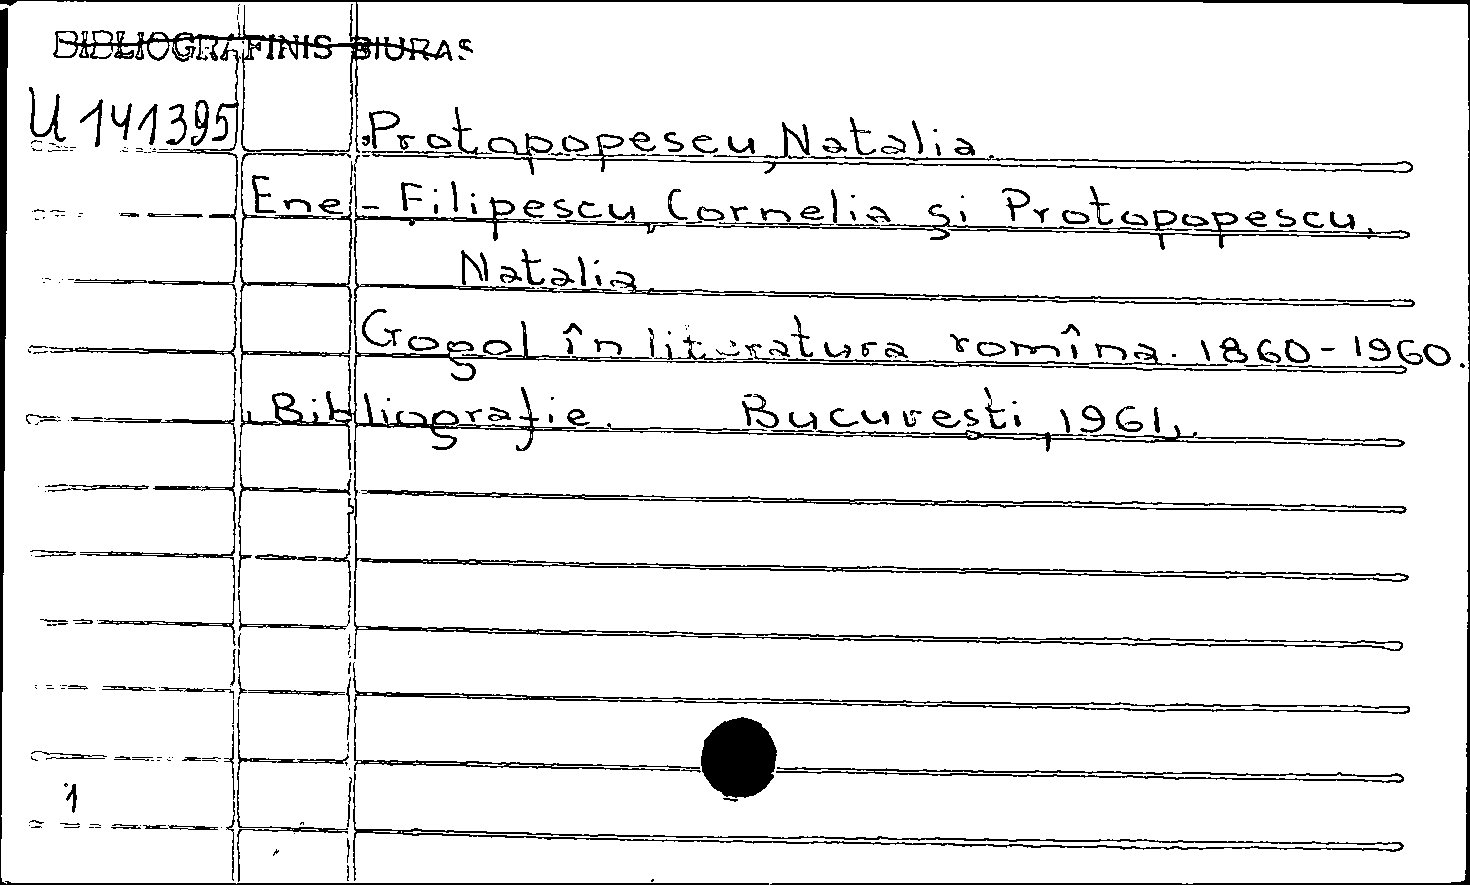 BIBLIOGRAFINIS BIURAS
U 141395 Protopopescu, Natalia.
Ene-Filipescu, Cornelia și Protopopescu,
Natalia.
Gogol în literatura romîna. 1860-1960.
Bibliografie. București, 1961,.
1